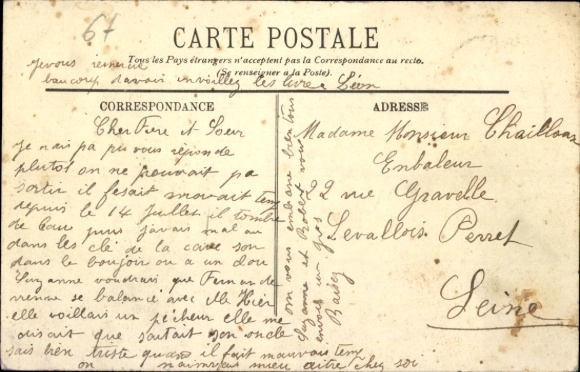 67
CARTE POSTALE
Tous les Pays étrangers n'acceptent pas la Correspondance au recto.
(Se renseigner à la Poste).
je vous remercie
beaucoup davoir envoillez les livre Léon
CORRESPONDANCE
Cher Frere et Sœur
Je nais pa pu vous réponde
plutot on ne pouvait pa
sortir il fesait mauvait tem
depuis le 14 Juillet il tombe
de leau puis javais mal au
dans les clé de la cave son
dans le boujoir ou a un dou
Suzanne voudrais que Fernande
vienne se balancé avec elle Hier
elle voillais un pécheur elle me
disait que sautait son oncle
sais bien triste quand il fait mauvais temp
on naimerais mieu aitre chez soi
on vous embrase bien tous
Suzanne et Robert vous
envois un gros
Baisez
ADRESSE
Madame Monsieur Chailloux
Enbaleur
22 rue Gravelle
Levallois Perret
Seine